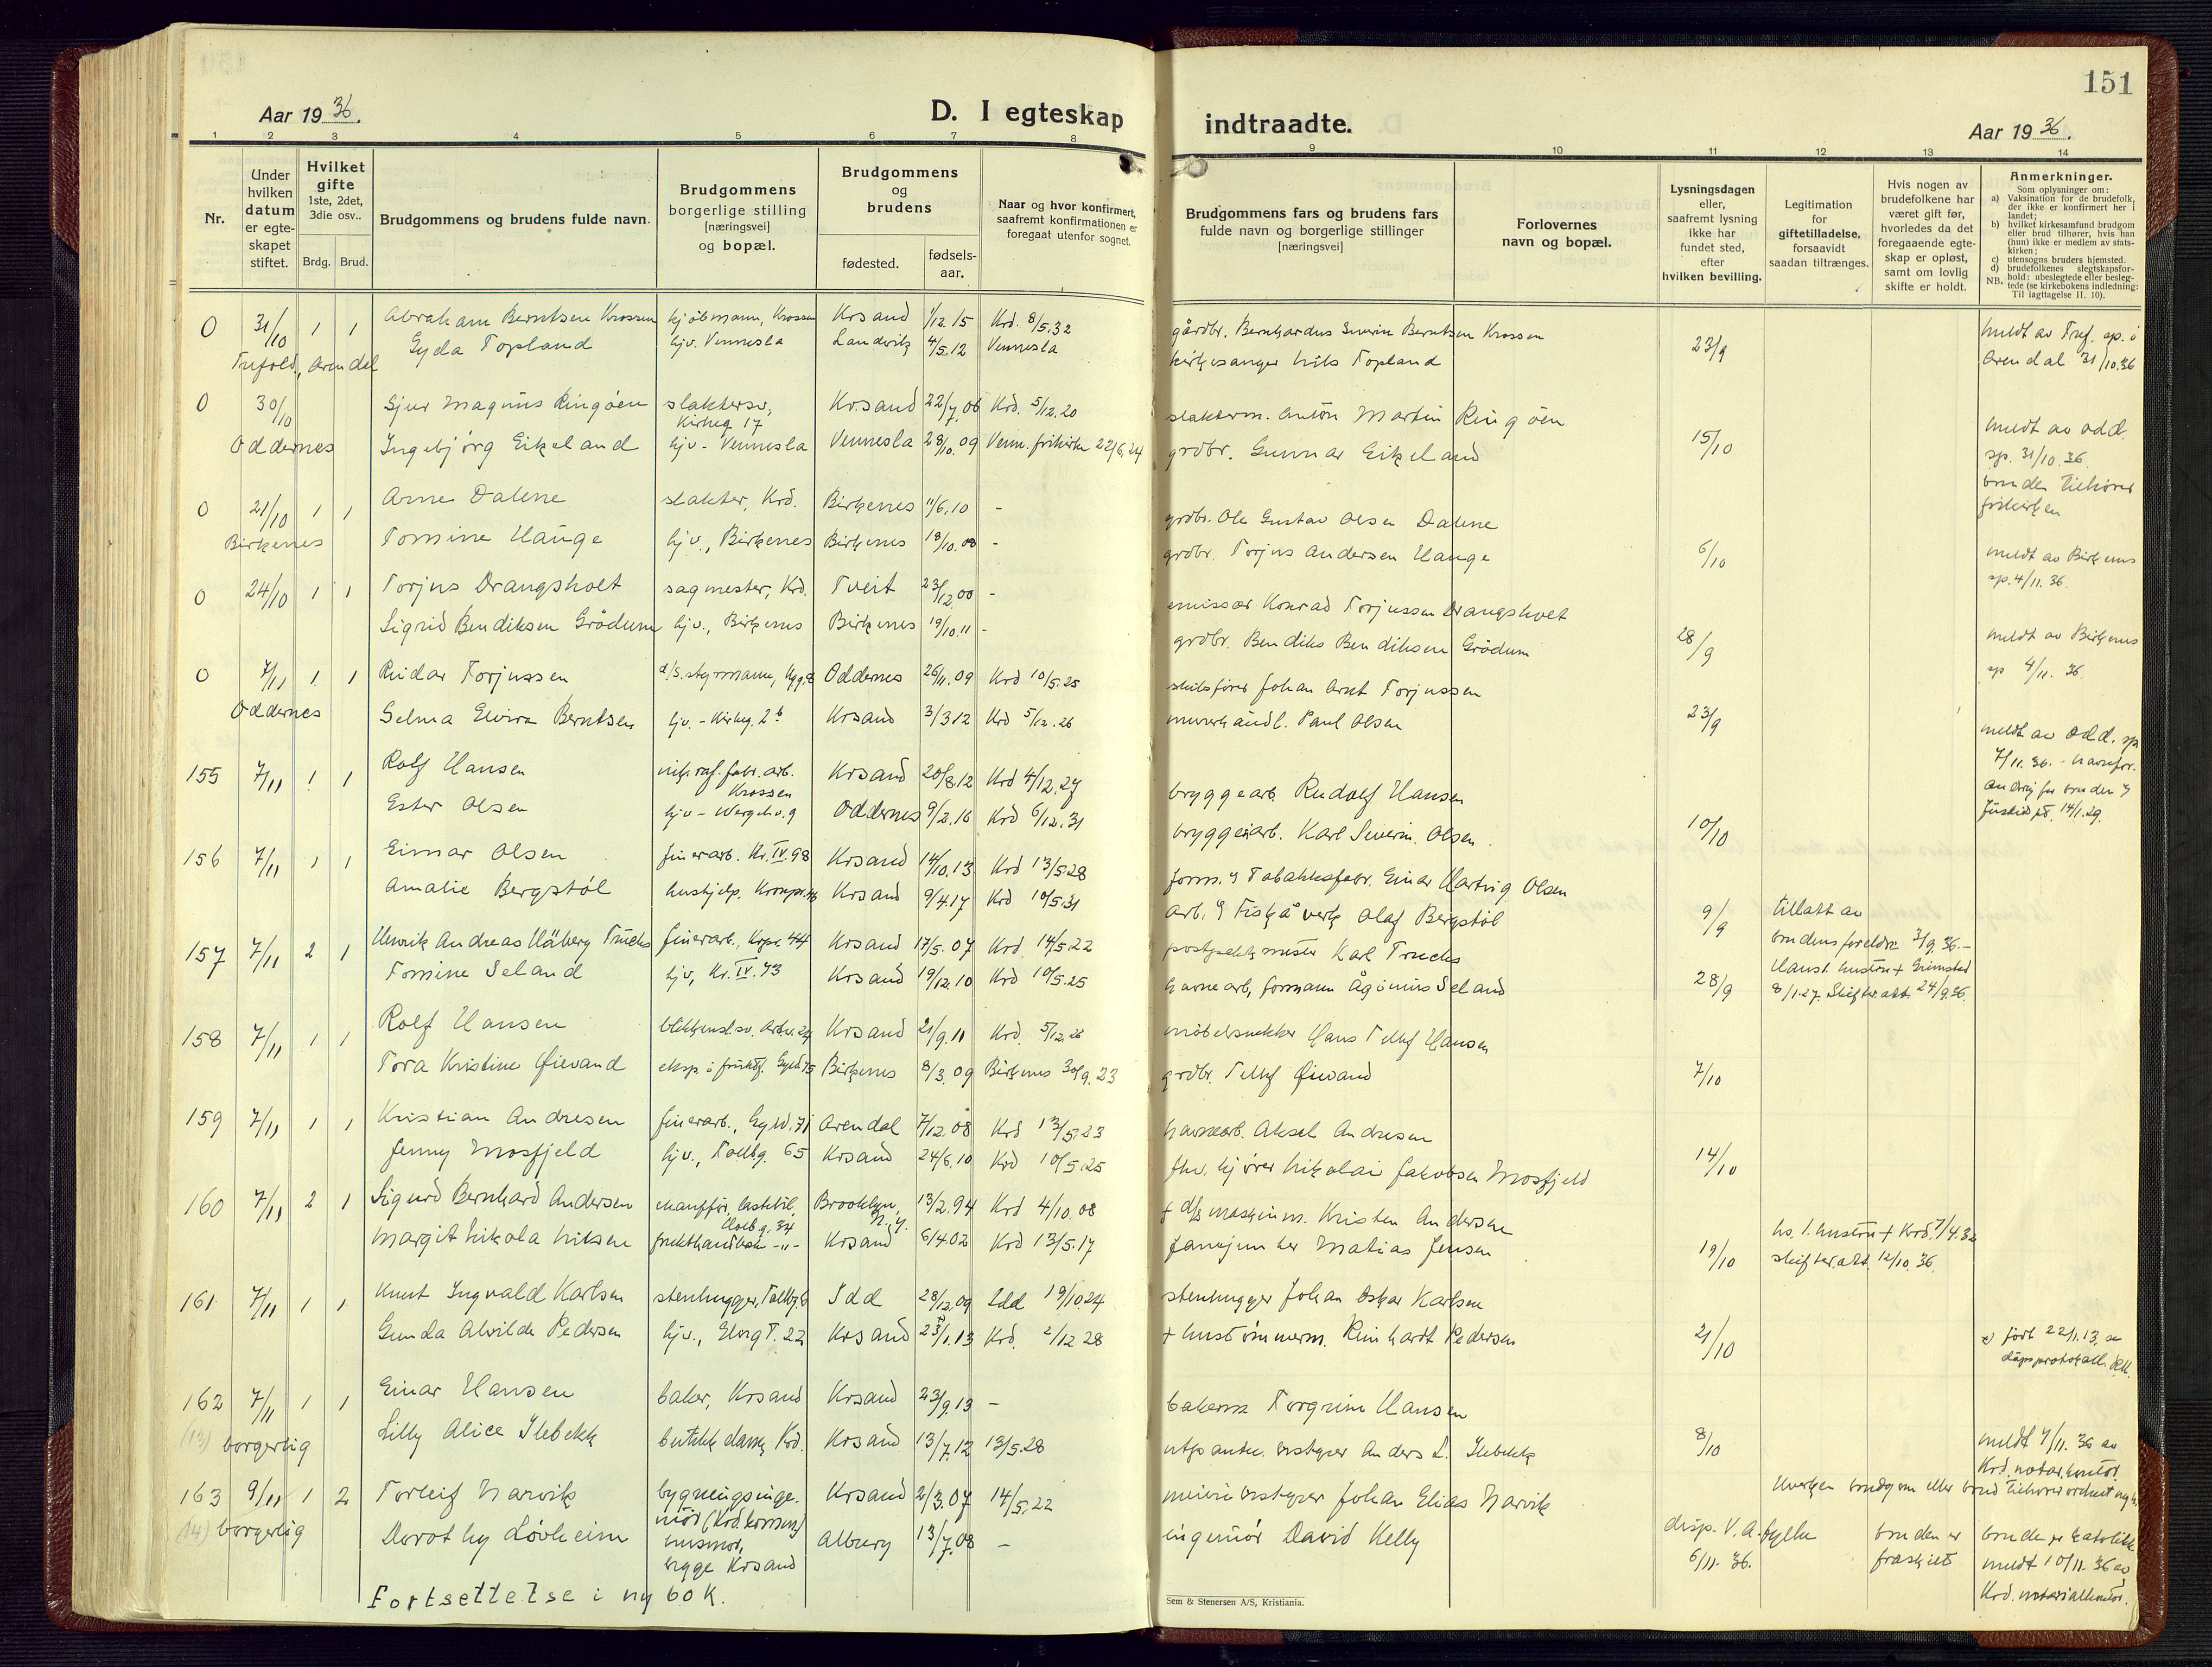 151
Aar 1936.
D. I egteskap
indtraadte.
Aar 1936.
1 2 3 4 5 6 7 8 9 10 11 12 13 14
Nr.
Under hvilken datum er egteskapet stiftet.
Hvilket gifte 1ste, 2det, 3die osv..
Brdg. Brud.
Brudgommens og brudens fulde navn.
Brudgommens borgerlige stilling [næringsvei] og bopæl.
Brudgommens og brudens
fødested.
fødsels-aar.
Naar og hvor konfirmert, saafremt konfirmationen er foregaat utenfor sognet.
Brudgommens fars og brudens fars fulde navn og borgerlige stillinger [næringsvei]
Forlovernes navn og bopæl.
Lysningsdagen eller, saafremt lysning ikke har fundet sted, efter hvilken bevilling.
Legitimation for giftetilladelse, forsaavidt saadan tiltrænges.
Hvis nogen av brudefolkene har været gift før, hvorledes da det foregaaende egteskap er opløst, samt om lovlig skifte er holdt.
Anmerkninger.
Som oplysninger om:
a) Vaksination for de brudefolk, der ikke er konfirmert her i landet;
b) hvilket kirkesamfund brudgom eller brud tilhører, hvis han (hun) ikke er medlem av statskirken;
c) utensogns bruders hjemsted.
d) brudefolkenes slegtskapsforhold: ubeslegtede eller beslegtede (se kirkebokens indledning: NB. Til iagttagelse II. 10).
0 31/10 1 1 Abraham Berntsen Krossen kjøbmann, Krossen Krsand 1/12.15 Krd. 8/5.32 gårdbr. Bernhardus Severin Berntsen Krossen meldt av Tref. sp. i
Gyda Topland hjv. Vennesla Landvik 4/5.12 Vennesla kirkesanger Nils Topland 23/9 Arendal 31/10.36
Trefold., Arendal
0 30/10 Sjur Magnus Ringøen slaktersv., Kirkeg 17 Krsand 22/7.06 Krd. 5/12.20 slakterm. Anton Martin Ringøen
Oddernes Ingebjørg Eikeland hjv - Vennesla Vennesla 28/10.09 Venn. frikirke 22/6.24 grdbr. Gunnar Eikeland 15/10 meldt av Odd. sp. 31/10.36. bruden tilhører frikirken
0 21/10 1 1 Arne Dalene slakter, Krd. Birkenes 11/6.10 - grdbr. Ole Gustav Olsen Dalene
Birkenes Tomine Hauge hjv., Birkenes Birkenes 18/10.08 - grdbr. Torjus Andersen Hauge 6/10 meldt av Birkenes sp. 4/11.36.
0 24/10 1 1 Torjus Drangsholt sagmester, Krd. Tveit 23/12.00 - emissær Konrad Torjussen Drangsholt
Sigrid Bendiksen Grødum hjv., Birkenes Birkenes 19/10.11 - grdbr. Bendiks Bendiksen Grødum 28/9 meldt av Birkenes sp 4/11.36.
0 7/11 1 1 Reidar Torjussen d/s. styrmann, Oddernes 26/11.09 Krd 10/5.25 skibsfører Johan Arnt Torjussen
Oddernes Selma Elvira Berntsen hjv. - Kirkeg. 2b Krsand 3/3 12 Krd 5/12.26 murerhåndl. Paul Olsen 23/9 meldt av Odd. sp 7/11.36. -
155 7/11 1 1 Rolf Hansen nik.raf.fabr.arb. Krossen Krsand 20/8.12 Krd 4/12.27 bryggearb. Rudolf Hansen
Ester Olsen hjv - Wergelv. 9 Oddernes 9/2.16 Krd 6/12.31 bryggeriarb. Karl Severin Olsen 10/10
156 7/11 1 1 Einar Olsen finerarb. Kr. IV. 98 Krsand 14/10.13 Krd 13/5.28 form. i Tobakksfabr. Einar Hartvig Olsen
Amalie Bergstøl hushjelp. Krsand 9/4.17 Krd 10/5.31 arb. i Fiskå verk Olaf Bergstøl 9/9 tillatt av brudens foreldre 3/9.36. -
157 7/11 2 1 Henrik Andreas Håberg Truchs finerarb., Krpr. 44 Krsand 17/5.07 Krd. 14/5.22 Karl Truchs
Tomine Seland hjv, Kr. IV. 43 Krsand 19/12.10 Krd 10/5.25 havnearb. formann Ågomius Seland 28/9 Hans 1. hustru + Grimstad 8/1.27. Skifter.att. 24/9.36.
158 7/11 1 1 Rolf Hansen blikkensl.sv. Krsand 21/9.11 Krd. 5/12.26 møbelsnekker Hans Tellef Hansen
Tora Kristine Øievand eksp. i fruktf. Gyld. 75 Birkenes 8/3.09 Birkenes 30/9.23 grdbr. Tellef Øievand 7/10
159 7/11 1 1 Kristian Andresen finerarb., Gyld. 71 Arendal 7/12.08 Krd 13/5.23 havnearb. Aksel Andresen
Jenny Mosfjeld hjv., Tollbg. 65 Krsand 24/6.10 Krd 10/5.25 fhv. kjører Nikolai Jakobsen Mosfjeld 14/10
160 7/11 2 1 Sigurd Bernhard Andersen chauffør, lastebil, Holbg. 34 Brooklyn, N.Y. 13/2.94 Krd 4/10.08 + d/s maskinm. Kristen Andersen
Margit Nikola Nilsen frukthandlersk -"- Krsand 6/4.02 Krd 13/5.17 Matias Jensen 19/10 hs. 1. hustru + Krd. 7/4.32 skifter.att. 12/10.36.
161 7/11 1 1 Knut Ingvald Karlsen stenhugger, Idd 28/12.09 Idd 19/10.24 stenhugger Johan Oskar Karlsen
Gunda Alvilde Pedersen hjv., Elvegt. 22 Krsand 23/1.13 Krd. 2/12 28 + hustømmerm. Reinhardt Pedersen 21/10 x) født 22/1.13, se dåpsprotokoll.
162 7/11 1 1 Einar Hansen baker, Krsand Krsand 23/9.13 - bakerm Torgrim Hansen
(13) borgerlig Lilly Alice Ilebekk butikkdame, Krd. Krsand 13/7.12 13/5.28 utpantn. bestyrer Anders L. Ilebekk 8/10 meldt 7/11.36 av Krd. notar.kontor.
163 9/11 1 2 Torleif Narvik bygningsingeniør (Krd. kommune) Krsand 2/3.07 14/5.22 meieribestyrer Johan Elias Narvik Hverken brudgom eller brud tilhører
(14) borgerlig Dorothy Løvheim husmor, begge Krsand Albury 13/7.08 - ingeniør David Kelly disp. V.A. fylke 6/11.36. bruden er fraskilt bruden er katolikk. meldt 10/11.36 av Krd. notarialkontor.
Fortsettelse i ny bok.
Sem & Stenersen A/S, Kristiania.